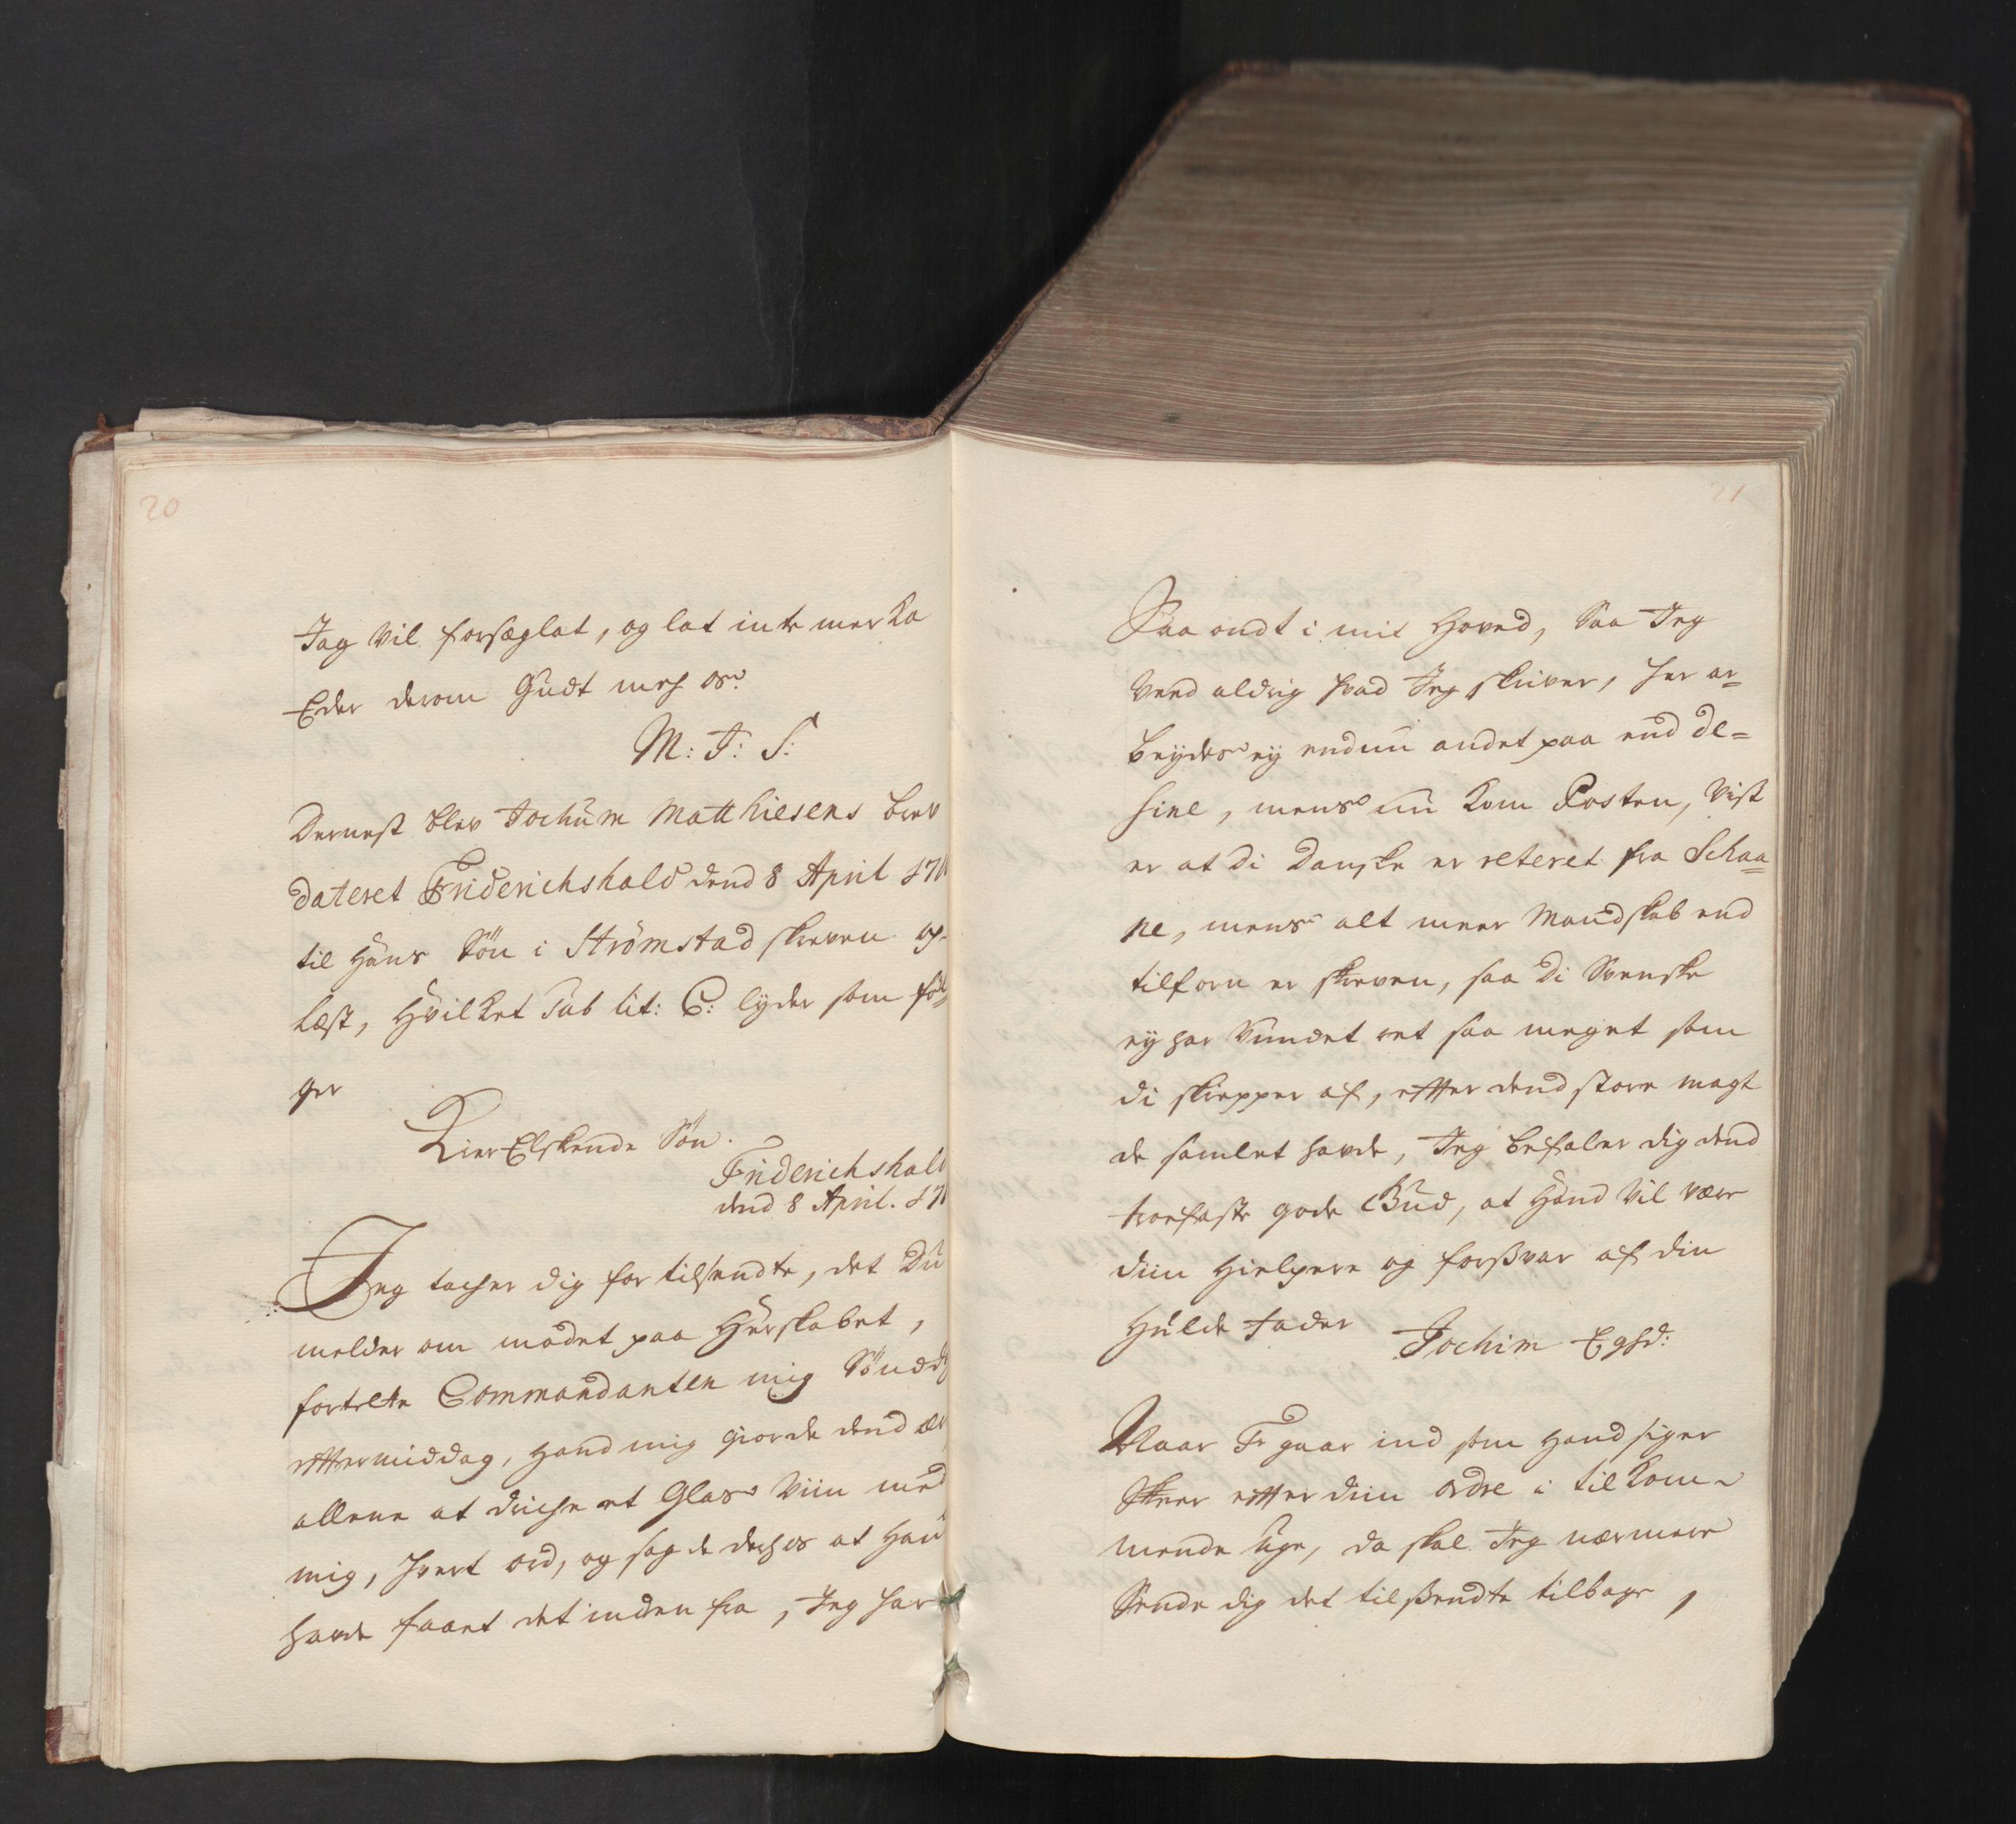 20
Jag vil forseglat, og lat inte merka
Eder derom Gudt meh os.
M: J: S:
Dernest blev Jochüm Matthiesens brev
dateret Friderichshald dend 8 April 171
til Hans Søn i Strömstad skreven op-
læst, Hvilket sub lit: C: lyder som føl=
ger
Kier Elskende Søn.
Friderichshald
dend 8 April. 171
Jeg tacher dig for tilsendte, det Du
melder om mødet paa Herskabet,
fortelte Commandanten mig Sønd
eftermiddag, Hand mig giorde dend ær
allene at driche et Glas Viin med
mig, hvert ord, og sagde derhos at Han
hafde faaet det inden fra, Jeg har
21
Saa ondt i mit Hoved, saa Jeg
veed aldrig hvad Jeg skriver, her ar=
beydes ey endnu andet paa end de=
sine, mens nu kom Posten, vist
er at di Danske er reteret fra Schaa=
ne, mens alt meer Mandskab end
tilforn er skreven, saa di Svenske
ey har vundet ret saa meget som
di skrepper af, efter dend store magt
de samlet hafde, Jeg befaler dig dend
troefaste gode Gud, at Hand vil være
diin Hielpere og forsvar af din
Hulde Fader Jochim Eghd:
Naar Fr gaar ind som Hand siger
Skeer efter diin ordre i tilkom-
mende uge, da skal Jeg nærmere
Sende dig det tilsendte tilbage,